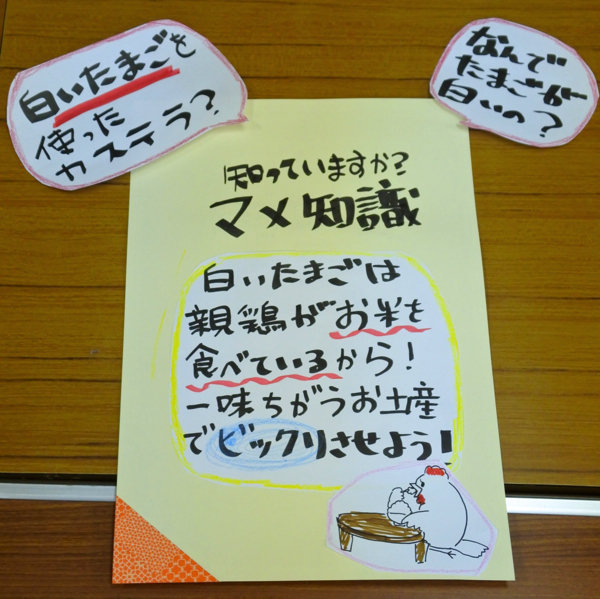 白いたまごを
使った
カステラ?
なんで
たまごが
白いの?
知っていますか?
マメ知識
白いたまごは
親鶏がお米を
食べているから!
一味ちがうお土産
でビックリさせよう!